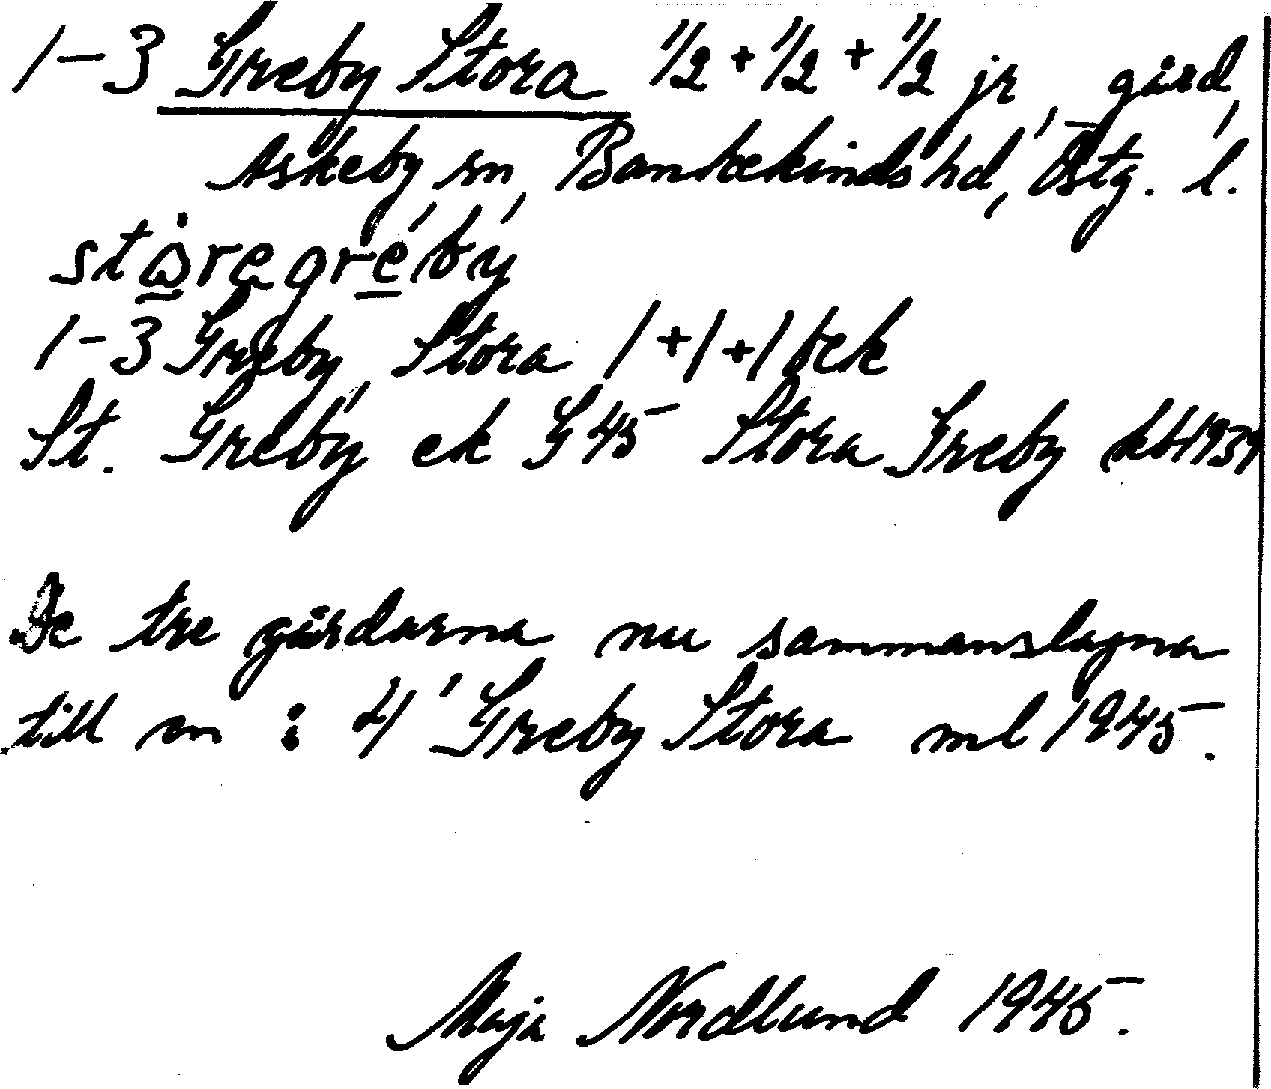 1-3 Greby Stora 1/2 + 1/2 + 1/2 jr, gård,
Askeby sn, Bankekinds hd, Östg. l.
1-3 Greby, Stora 1+1+1 bek
St. Greby ek G 45 Stora Greby kb 1939
De tre gårdarna nu sammanslagna
till en : 4' Greby Stora ml 1945.
Maja Nordlund 1945.